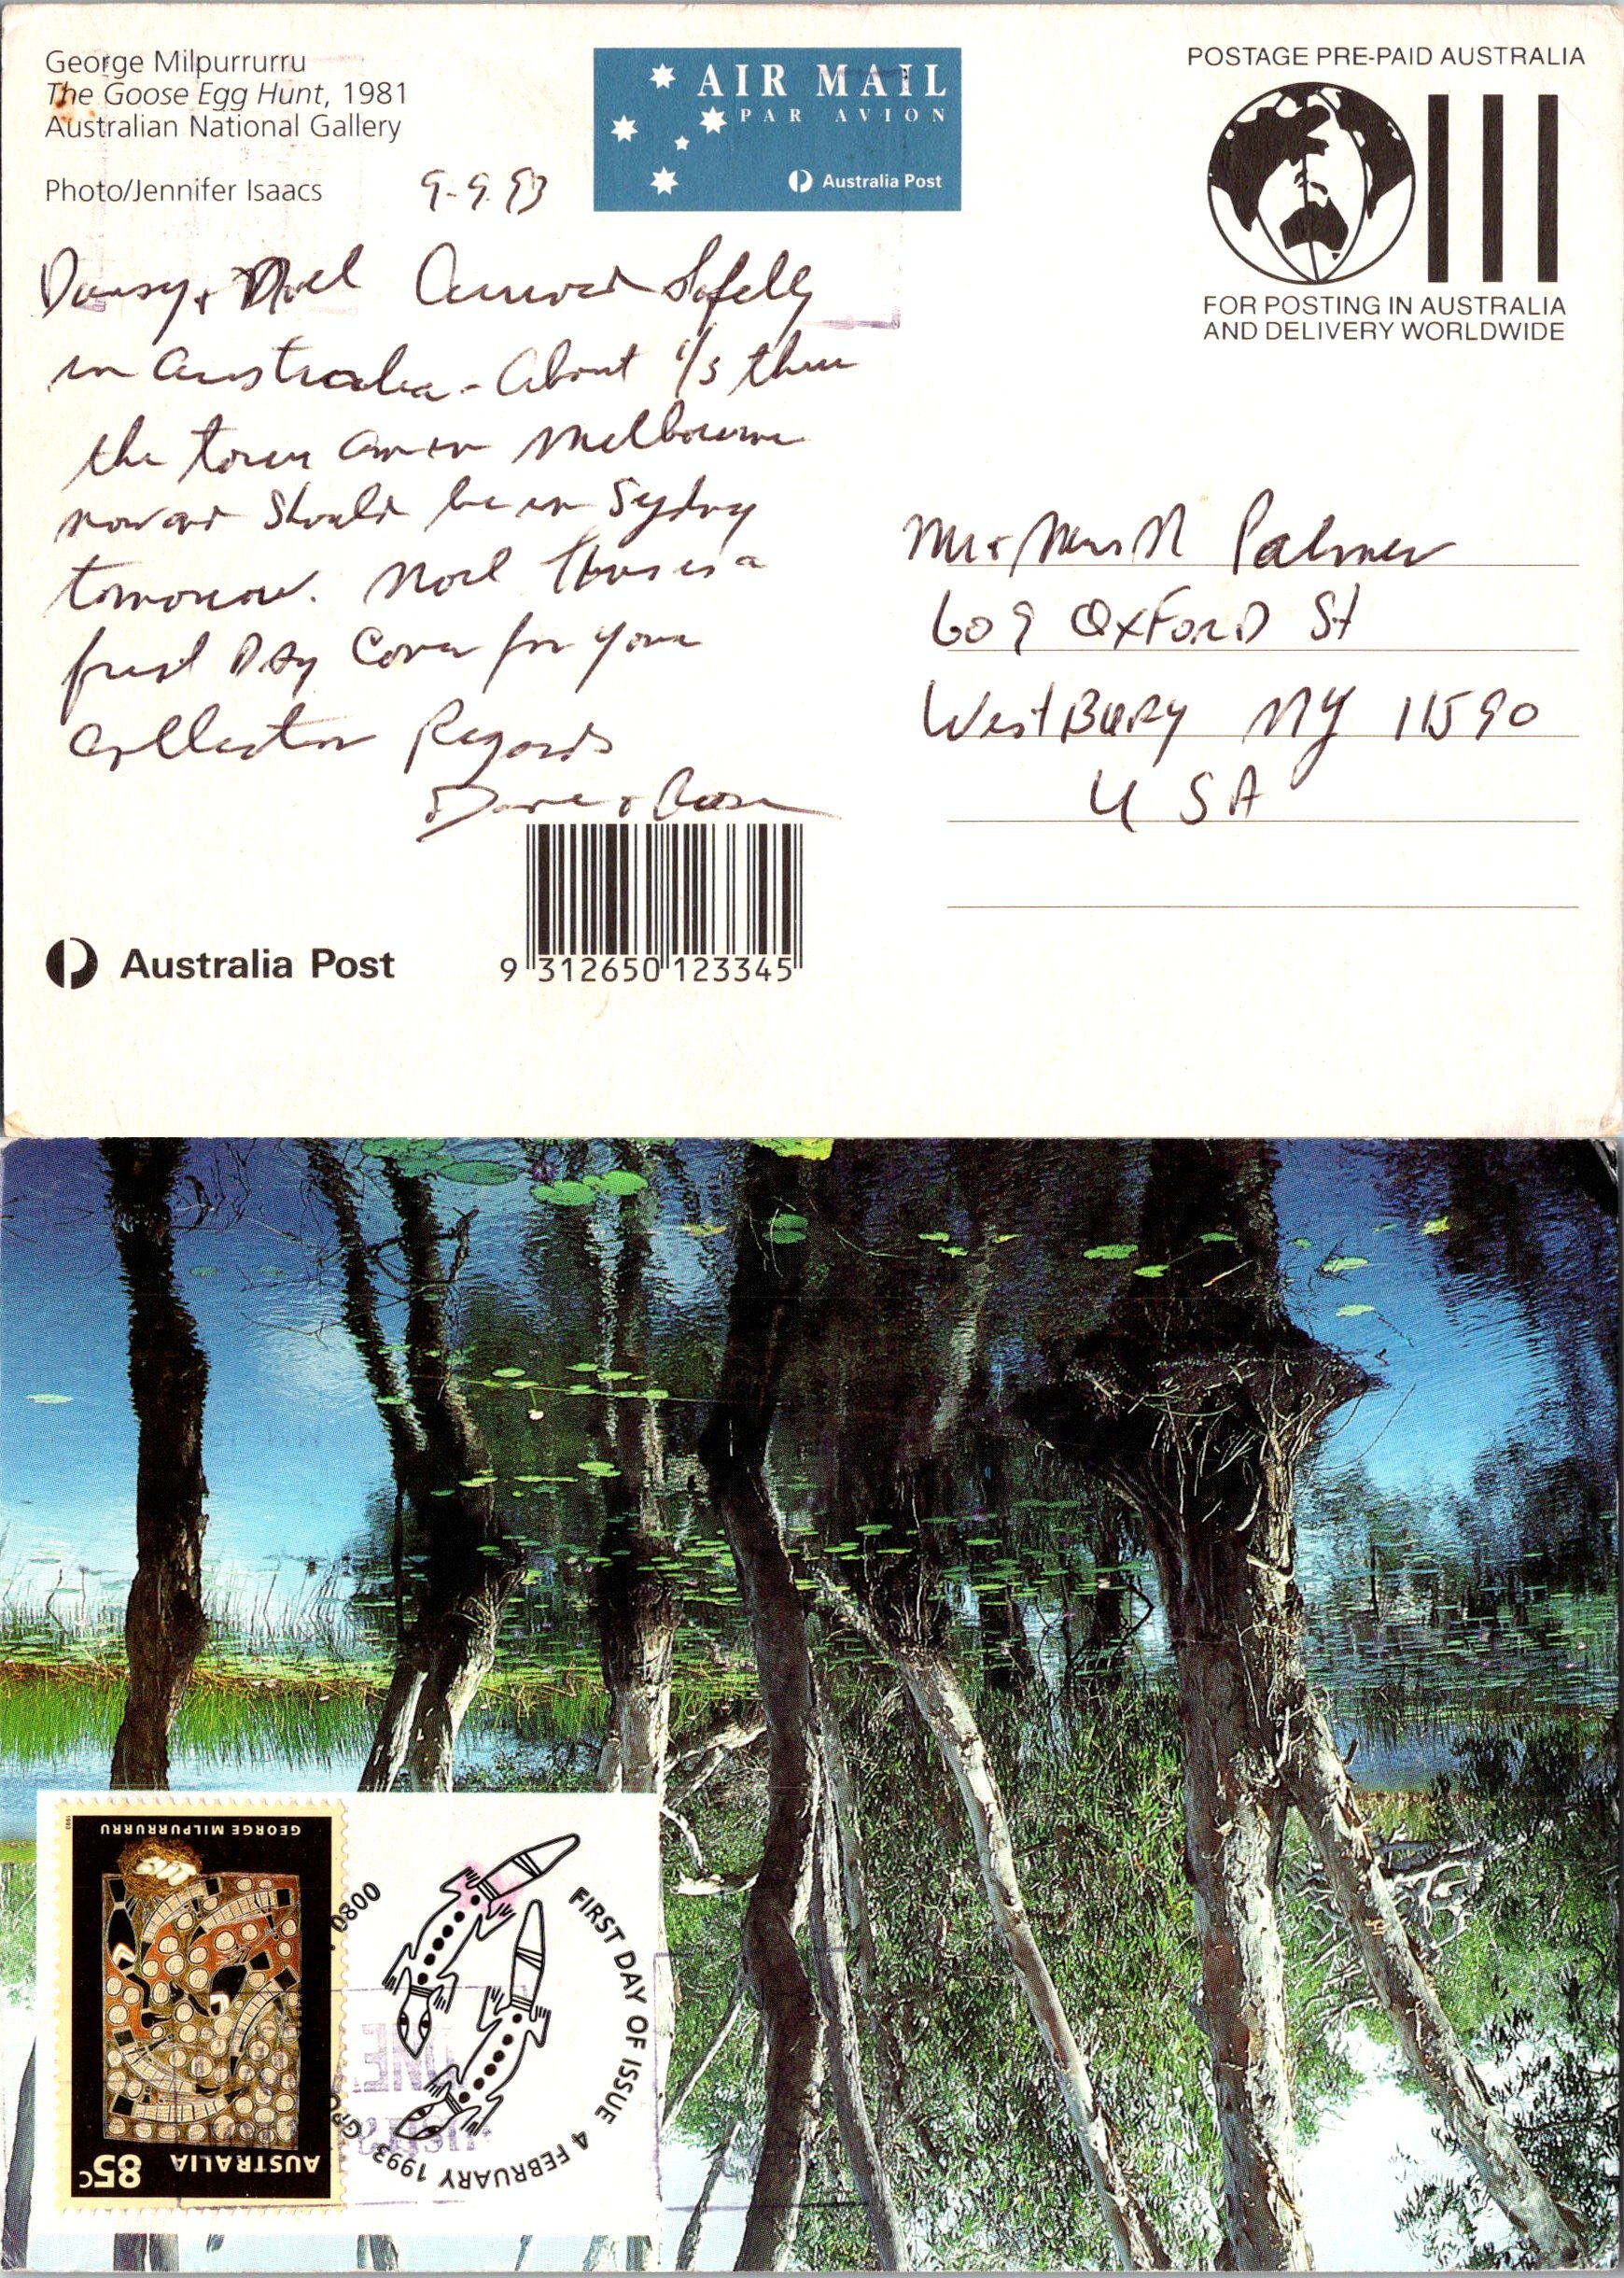 George Milpurrurru
The Goose Egg Hunt, 1981
Australian National Gallery
Photo/Jennifer Isaacs
9-9.93
AIR MAIL
PAR AVION
Australia Post
POSTAGE PRE-PAID AUSTRALIA
FOR POSTING IN AUSTRALIA
AND DELIVERY WORLDWIDE
& Noel Arrived Safely
in Australia - About 1/3 thru
the tour am in Melbourne
now and should be in Sydny
tomorrow. Noel this is a
first Day Cover for your
Collection Regards
Dave & Rose
Mr & Mrs N Palmer
609 OxFORD St
WestBury NY 11590
USA
Australia Post
9 312650 123345
GEORGE MILPURRURRU
1993
AUSTRALIA
85c
FIRST DAY OF ISSUE 4 FEBRUARY 1993
0800